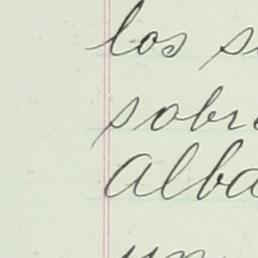 los s
sobre
Alba
un